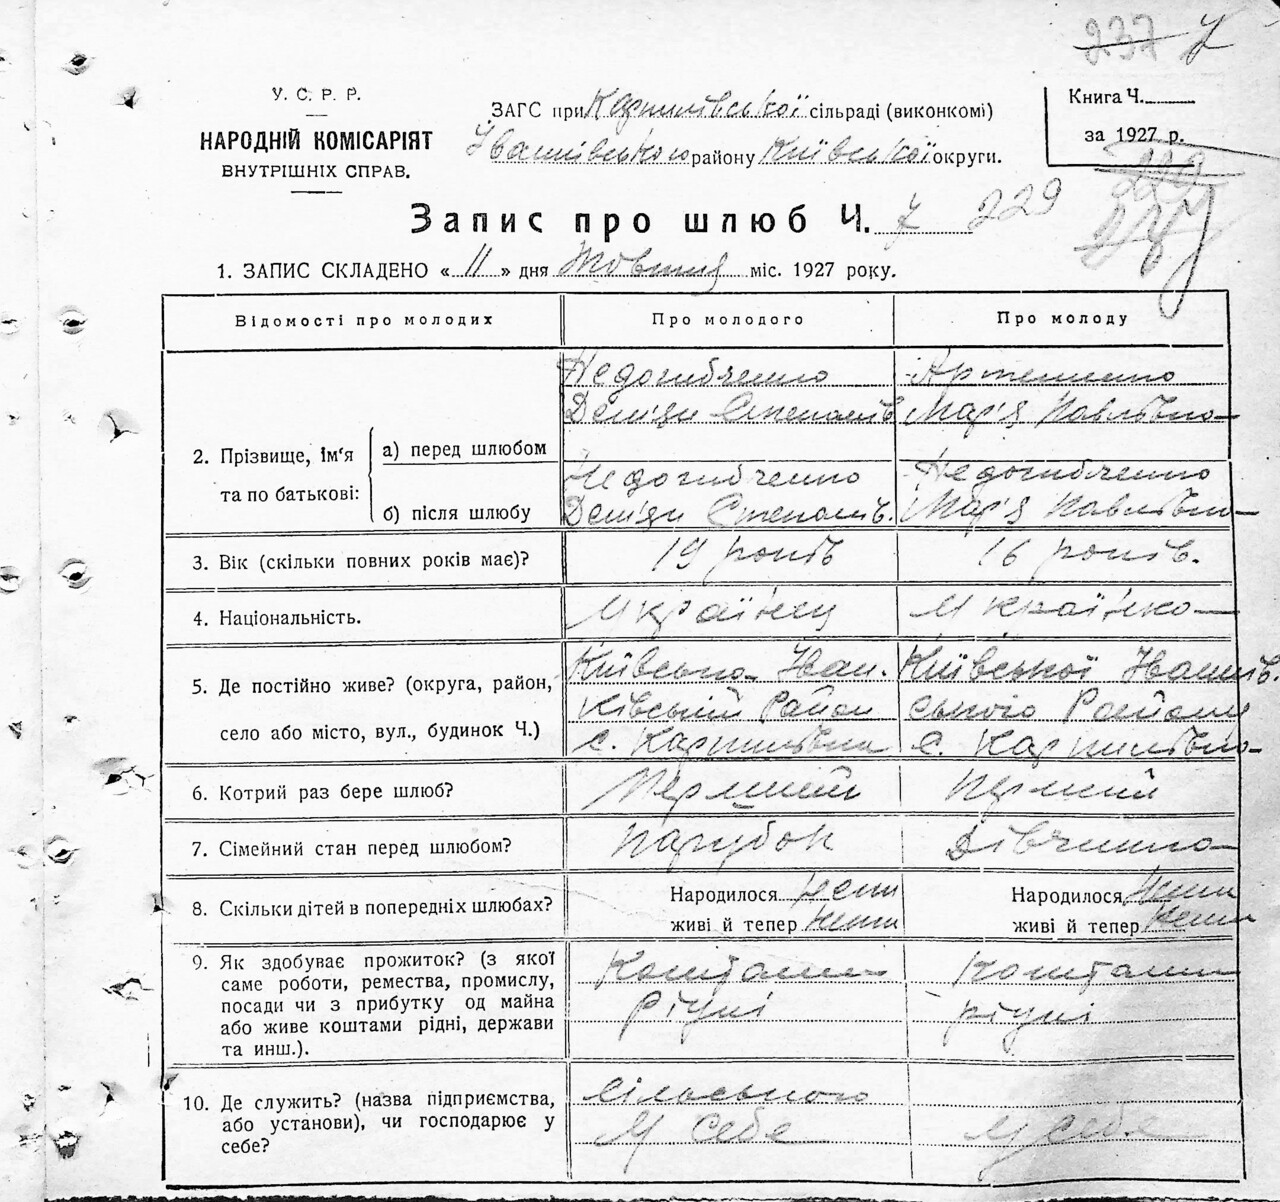 237 7
У. С. Р. Р.
НАРОДНІЙ КОМІСАРІЯТ
ВНУТРІШНІХ СПРАВ.
ЗАГС при Карпилівської сільраді (виконкомі)
Іванківського району Київської округи.
Книга Ч.
за 1927 р.
229
Запис про шлюб Ч. 7 229
1. ЗАПИС СКЛАДЕНО « 11 » дня Жовтня міс. 1927 року.
Відомості про молодих Про молодого Про молоду
2. Прізвище, ім'я та по батькові:
а) перед шлюбом
Недогибченко Артеменко
Демідь Степанів Мар'я Павлівна
б) після шлюбу
Недогибченко Недогибченко
Демідь Степанів. Мар'я Павлівна
3. Вік (скільки повних років має)? 19 років 16 років.
4. Національність. Українец Українка
5. Де постійно живе? (округа, район,
село або місто, вул., будинок Ч.)
Київська Іван. Київської Іванків.
ківський Район ського Району
с. Карпилівка с. Карпилівка
6. Котрий раз бере шлюб? Перший Перший
7. Сімейний стан перед шлюбом? Парубок Дівчина
8. Скільки дітей в попередніх шлюбах? Народилося Нема Народилося Нема
живі й тепер Нема живі й тепер Нема
9. Як здобуває прожиток? (з якої
саме роботи, ремества, промислу,
посади чи з прибутку од майна
або живе коштами рідні, держави
та инш.).
Коштами Коштами
Рідні рідні
10. Де служить? (назва підприємства,
або установи), чи господарює у
себе?
Сільського
У себе У себе